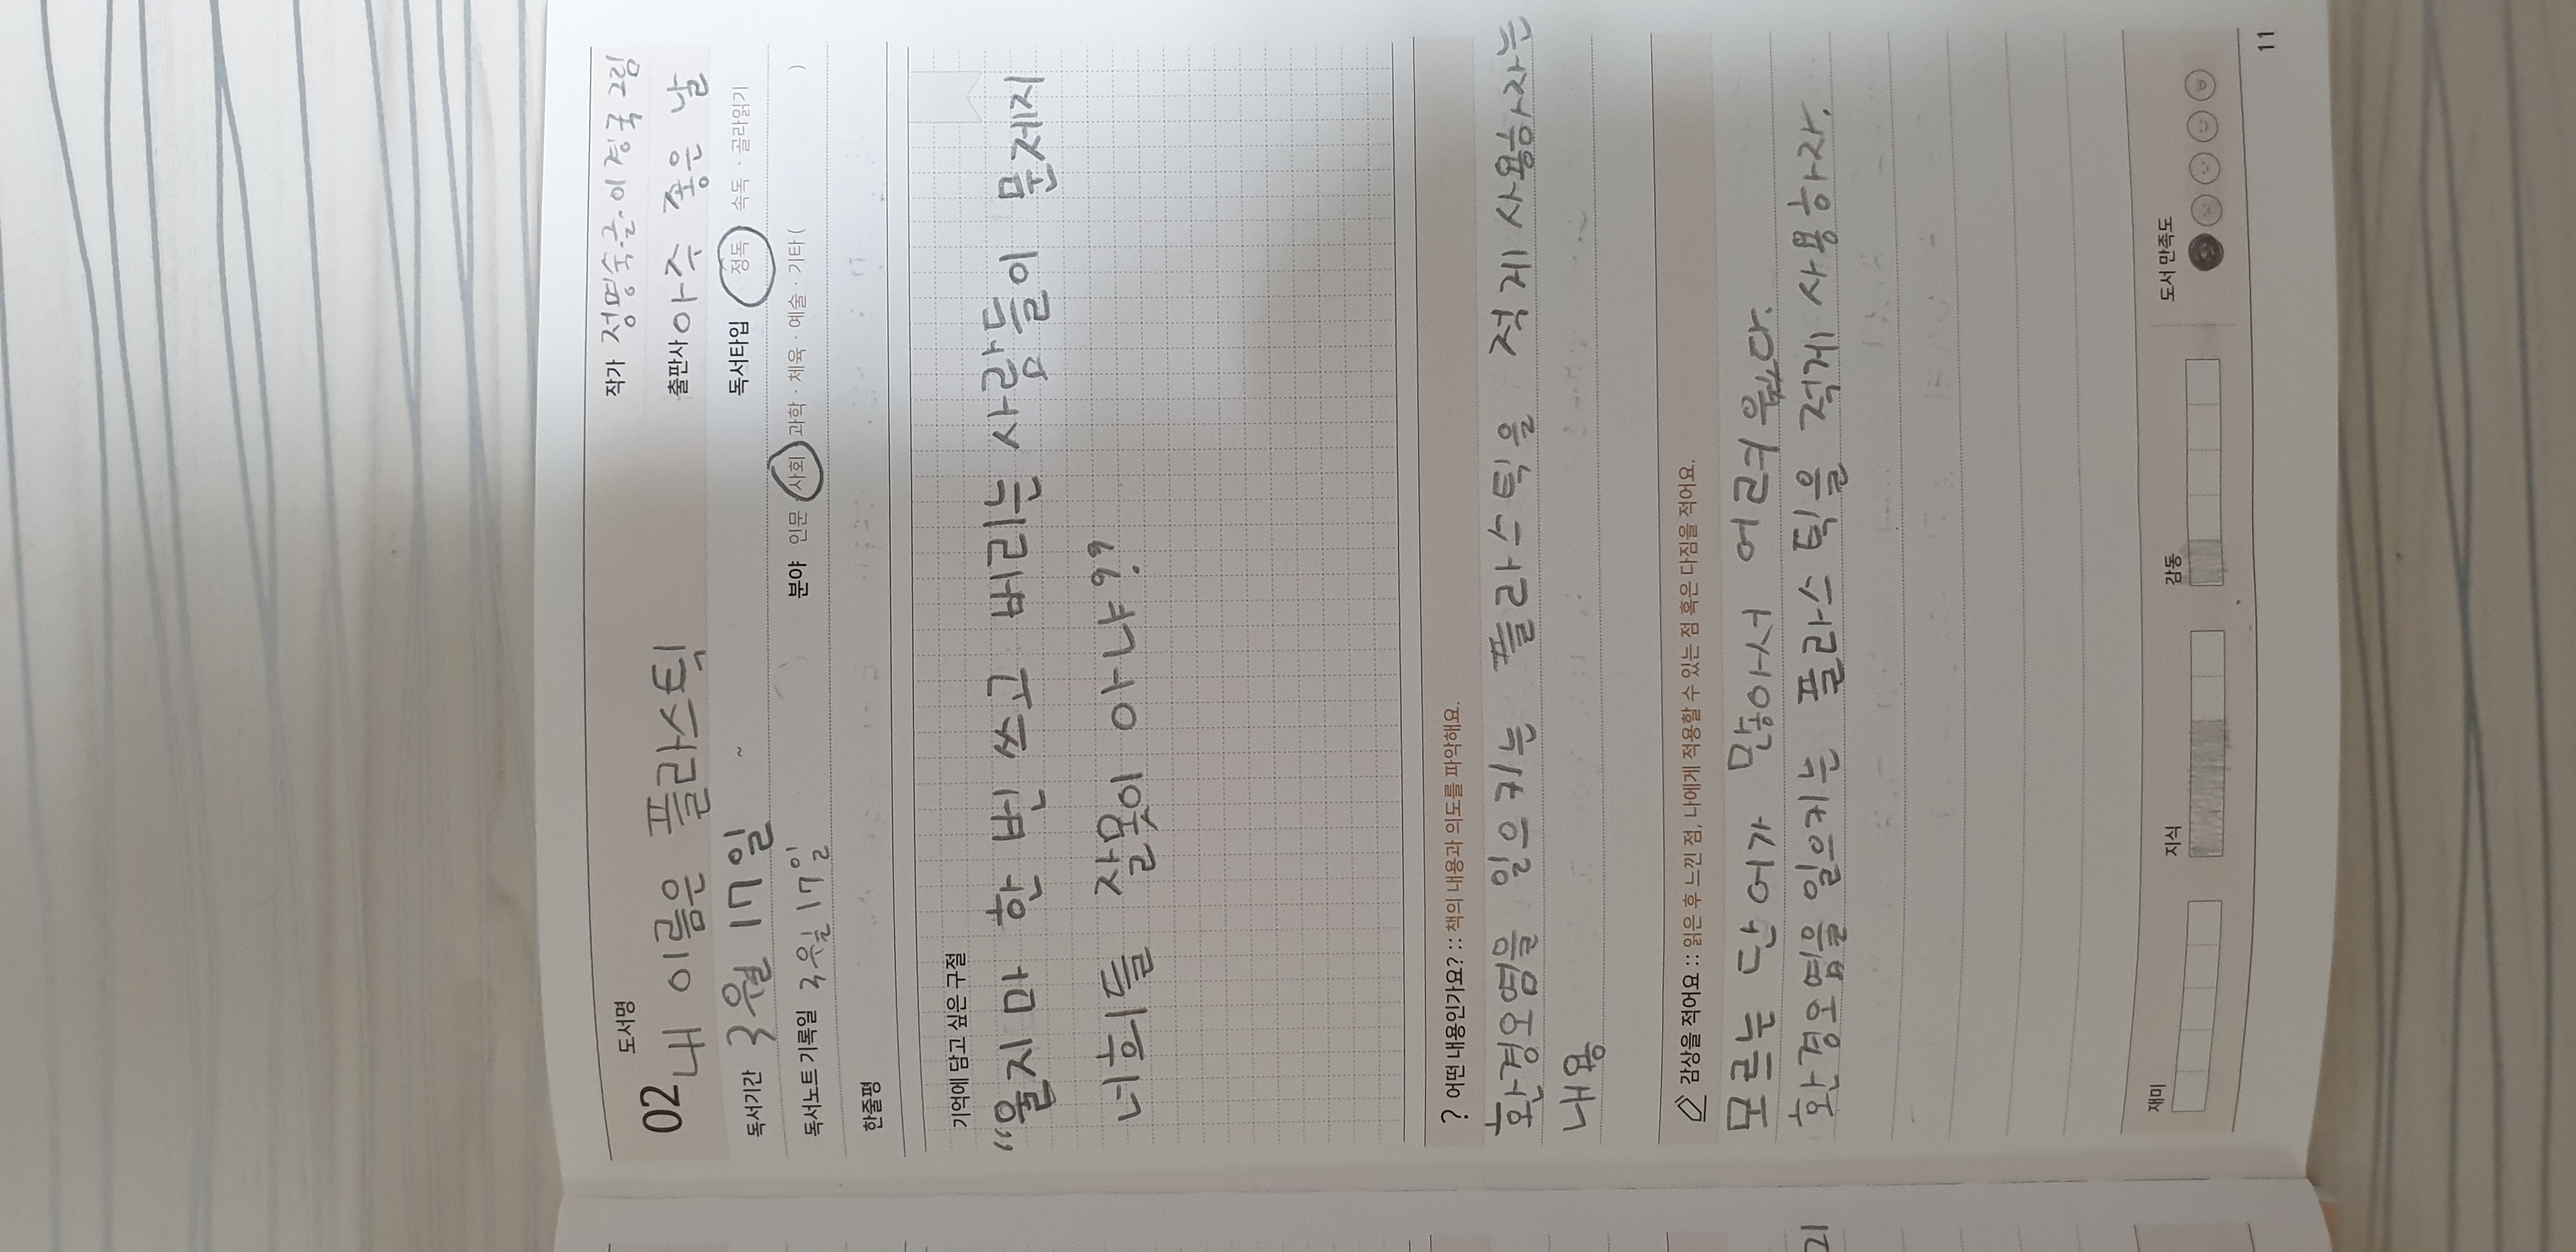 02 도서명
내 이름은 플라스틱
작가 정명숙·글·이경국 그림
출판사 아주 좋은 날
독서기간 3월 17일 ~
독서타입 정독 속독 · 골라읽기
독서노트 기록일 3월 17일
분야 인문 · 사회 · 과학 · 체육 · 예술 · 기타 ( )
한줄평
기억에 담고 싶은 구절
“울지 마 한 번 쓰고 버리는 사람들이 문제지
너희들 잘못이 아냐?”
? 어떤 내용인가요? :: 책의 내용과 의도를 파악해요.
환경오염을 일으키는 플라스틱을 적게 사용하자는
내용
감상을 적어요 :: 읽은 후 느낀 점, 나에게 적용할 수 있는 점 혹은 다짐을 적어요.
모르는 단어가 많아서 어려웠다.
환경오염을 일으키는 플라스틱을 적게 사용하자.
재미
지식
감동
도서 만족도
11